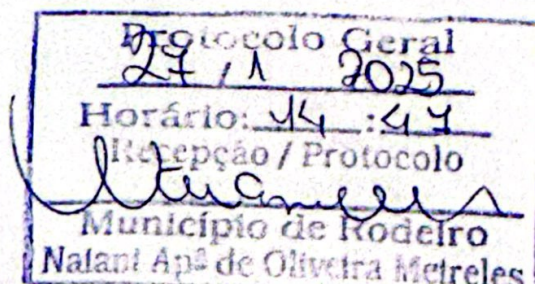 Protocolo Geral
27 / 1 2025
Horário: 14 : 47
Recepção / Protocolo
Município de Rodeiro
Natani Apª de Oliveira Meireles